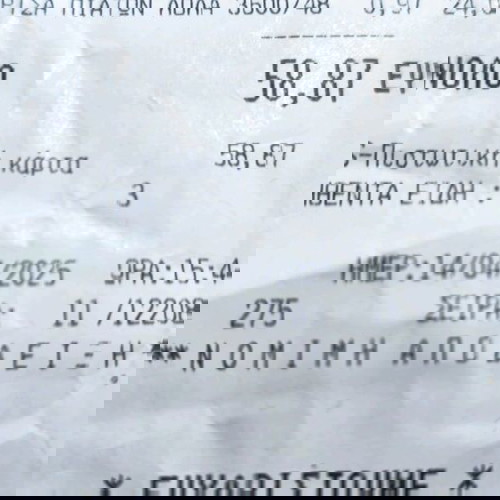 ΠΙΑΤΩΝ ΛΟΛΑ 3600748 0,97 24,0
58,87 ΕΥΡΩ
58,87 -Πιστωτική κάρτα
3 ΙΘΕΝΤΑ ΕΙΔΗ :
ΗΜΕΡ.:14/04/2025 ΩΡΑ:15:4
ΣΕΙΡΑ: 11 /12208 275
ΑΠΟΔΕΙΞΗ ** ΝΟΜΙΜΗ
* ΕΥΧΑΡΙΣΤΟΥΜΕ *